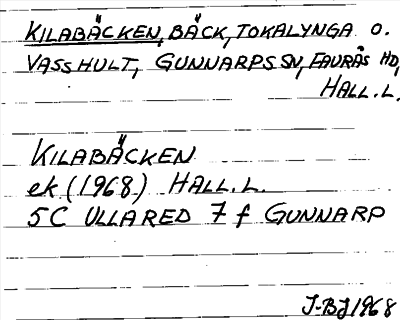 KILABÄCKEN, BÄCK, TOKALYNGA O.
VASSHULT, GUNNARPS SN, FAURÅS HD,
HALL. L.
KILABÄCKEN
ek. (1968) HALL. L.
5C ULLARED 7 f GUNNARP
J-BJ 1968